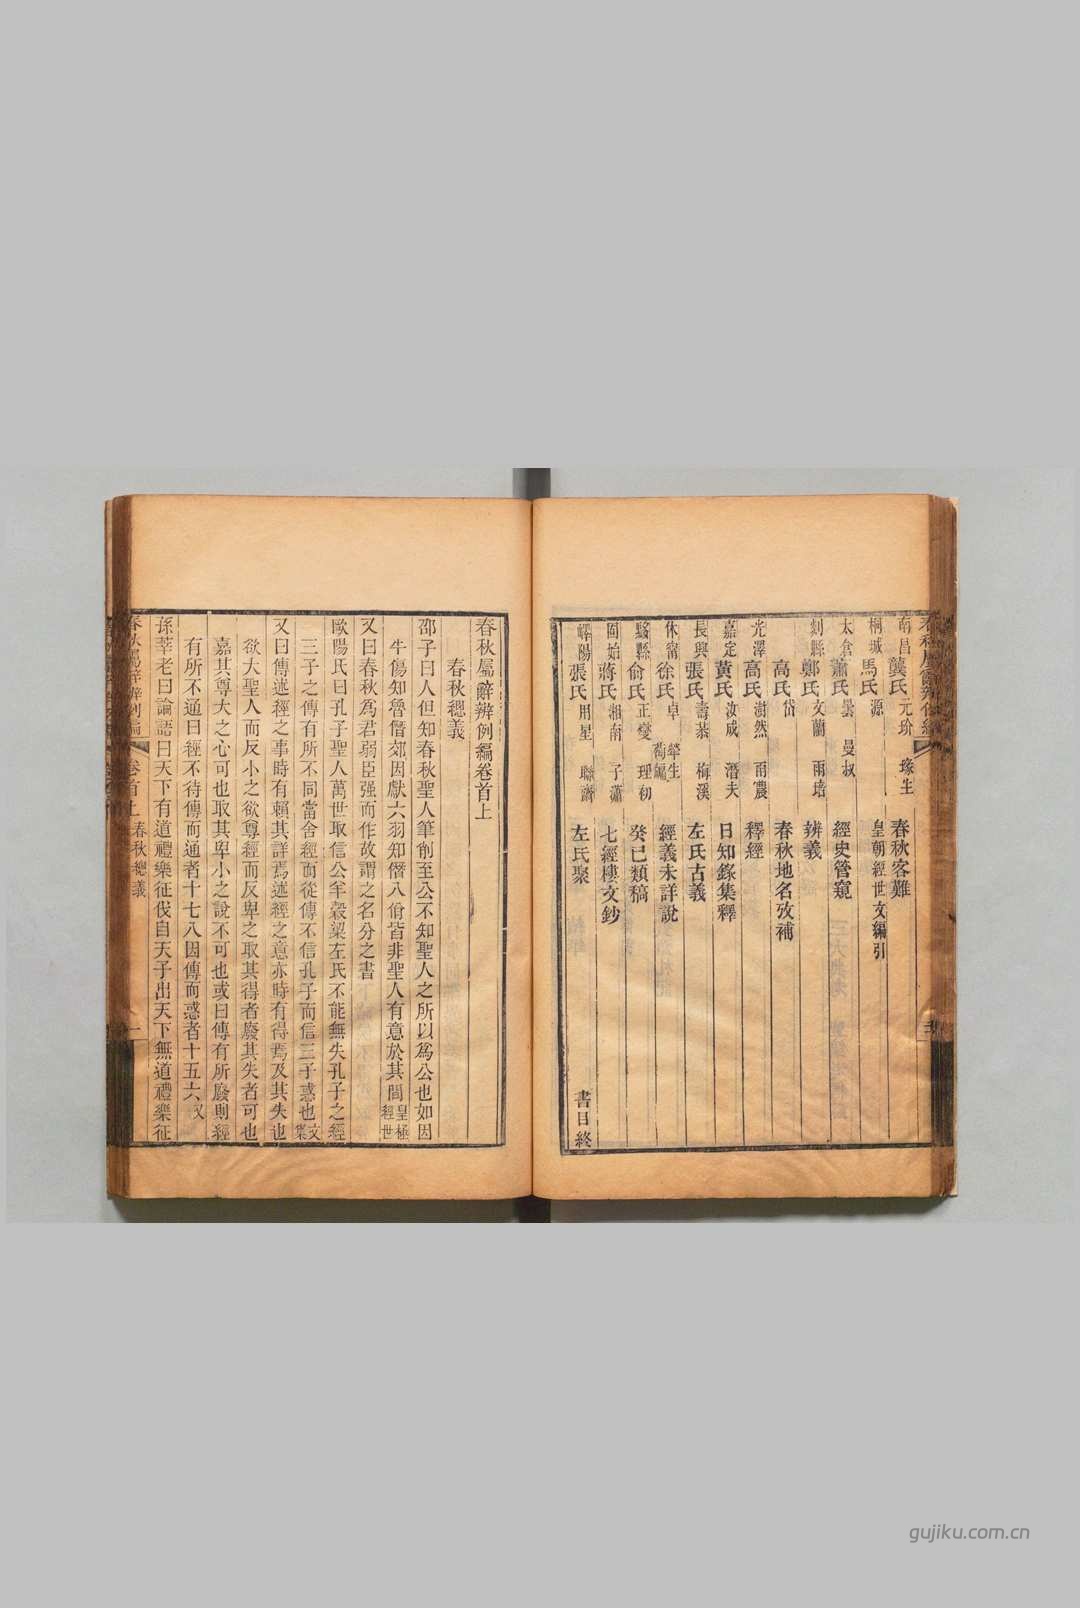 南昌龔氏元玠 瑑生 春秋客難
桐城馬氏源 皇朝經世文編引
太倉蕭氏曇 曼叔 經史管窺
剡縣鄭氏文蘭 雨培 辨義
高氏岱 春秋地名攷補
光澤高氏澍然 雨農 釋經
嘉定黃氏汝成 潛夫 日知錄集釋
長興張氏壽恭 梅溪 左氏古義
休甯徐氏卓 犖生 經義未詳說
黟縣俞氏正燮 理初 癸巳類稿
固始蔣氏湘南 子瀟 七經樓文鈔
嶧陽張氏用星 聯濟 左氏聚
書目終
春秋屬辭辨例編卷首上
春秋總義
邵子曰人但知春秋聖人筆削至公不知聖人之所以為公也如因
牛傷知魯僭郊因獻六羽知僭八佾皆非聖人有意於其間皇極經世
又曰春秋為君弱臣强而作故謂之名分之書
歐陽氏曰孔子聖人萬世取信公羊穀梁左氏不能無失孔子之經
三子之傳有所不同當舍經而從傳不信孔子而信三子惑也文集
又曰傳述經之事時有賴其詳焉述經之意亦時有得焉及其失也
欲大聖人而反小之欲尊經而反卑之取其得者廢其失者可也
嘉其尊大之心可也取其卑小之說不可也或曰傳有所廢則經
有所不通曰經不待傳而通者十七八因傳而惑者十五六又
孫莘老曰論語曰天下有道禮樂征伐自天子出天下無道禮樂征
春秋屬辭辨例編 卷首上 春秋總義 一
gujiku.com.cn